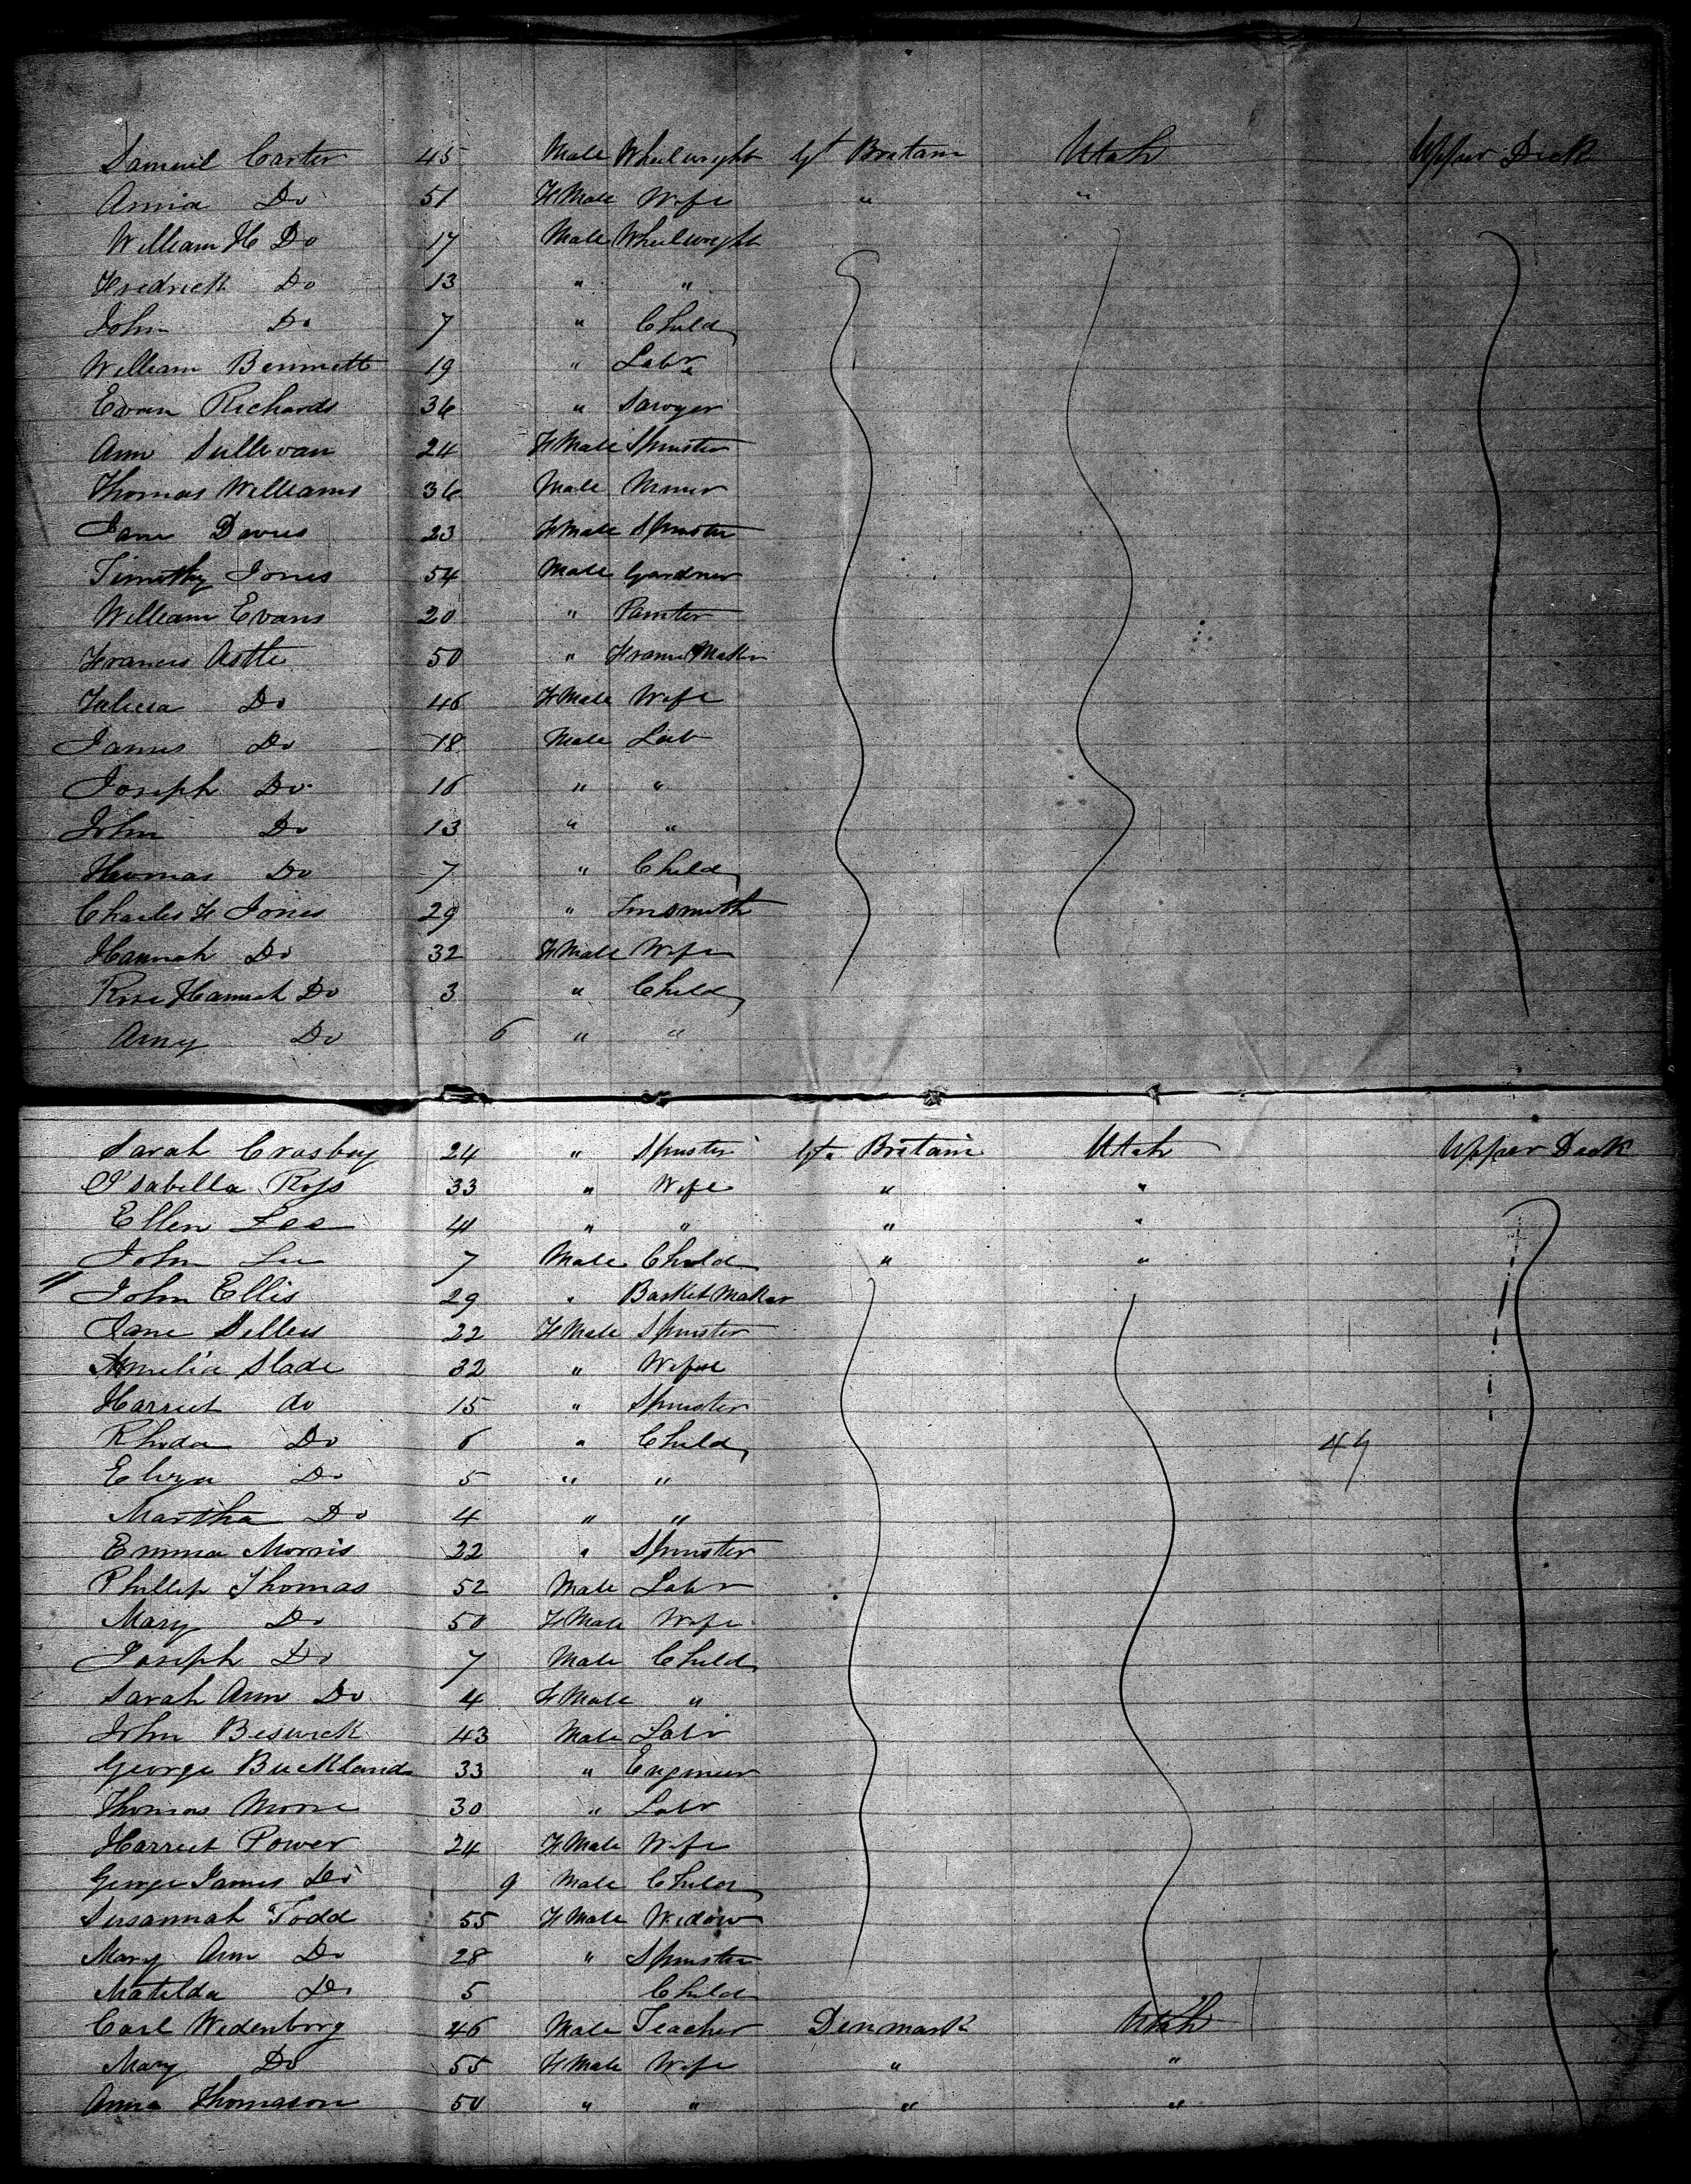 Samuel Carter 45 Male Wheelwright Gt Britain Utah Upper Deck
Annia Do 51 FMale Wife " "
William H Do 17 Male Wheelwright
Fredrick Do 13 " "
John Do 7 " Child
William Bennett 19 " Labr
Richards 36 " Sawyer
Ann Sullivan 24 FMale Spinster
Thomas Williams 36 Male Miner
Jane Davies 23 FMale Spinster
Timothy Jones 54 Male Gardner
William Evans 20 " Painter
Francis Astle 50 " Frame Maker
Felicia Do 46 FMale Wife
James Do 18 Male Lab
Joseph Do 16 " "
John Do 13 " "
Thomas Do 7 " Child
Charles F Jones 29 " Tinsmith
Hannah Do 32 FMale Wife
Rose Hannah Do 3 " Child
Amy Do 6 " "
Sarah Crosby 24 " Spinster Gt. Britain Utah Upper Deck
Isabella Ross 33 " Wife " "
Ellen Lee 41 " " " "
John Lee 7 Male Child " "
" John Ellis 29 " Basket Maker
Jane Sellers 22 FMale Spinster
Amelia Slade 32 " Wife
Harriet do 15 " Spinster
Rhoda Do 6 " Child 49
Eliza Do 5 " "
Martha Do 4 " "
Emma Morris 22 " Spinster
Phillip Thomas 52 Male Labr
Mary Do 50 FMale Wife
Joseph Do 7 Male Child
Sarah Ann Do 4 FMale "
John Beswick 43 Male Labr
George Buckland 33 " Engineer
Thomas Moore 30 " Labr
Harriet Power 24 FMale Wife
George James Do 9 Male Child
Susannah Todd 55 FMale Widow
Mary Ann Do 28 " Spinster
Matilda Do 5 Child
Carl Wedenborg 46 Male Teacher Denmark Utah
Mary Do 55 FMale Wife " "
Anna Thomason 50 " " " "